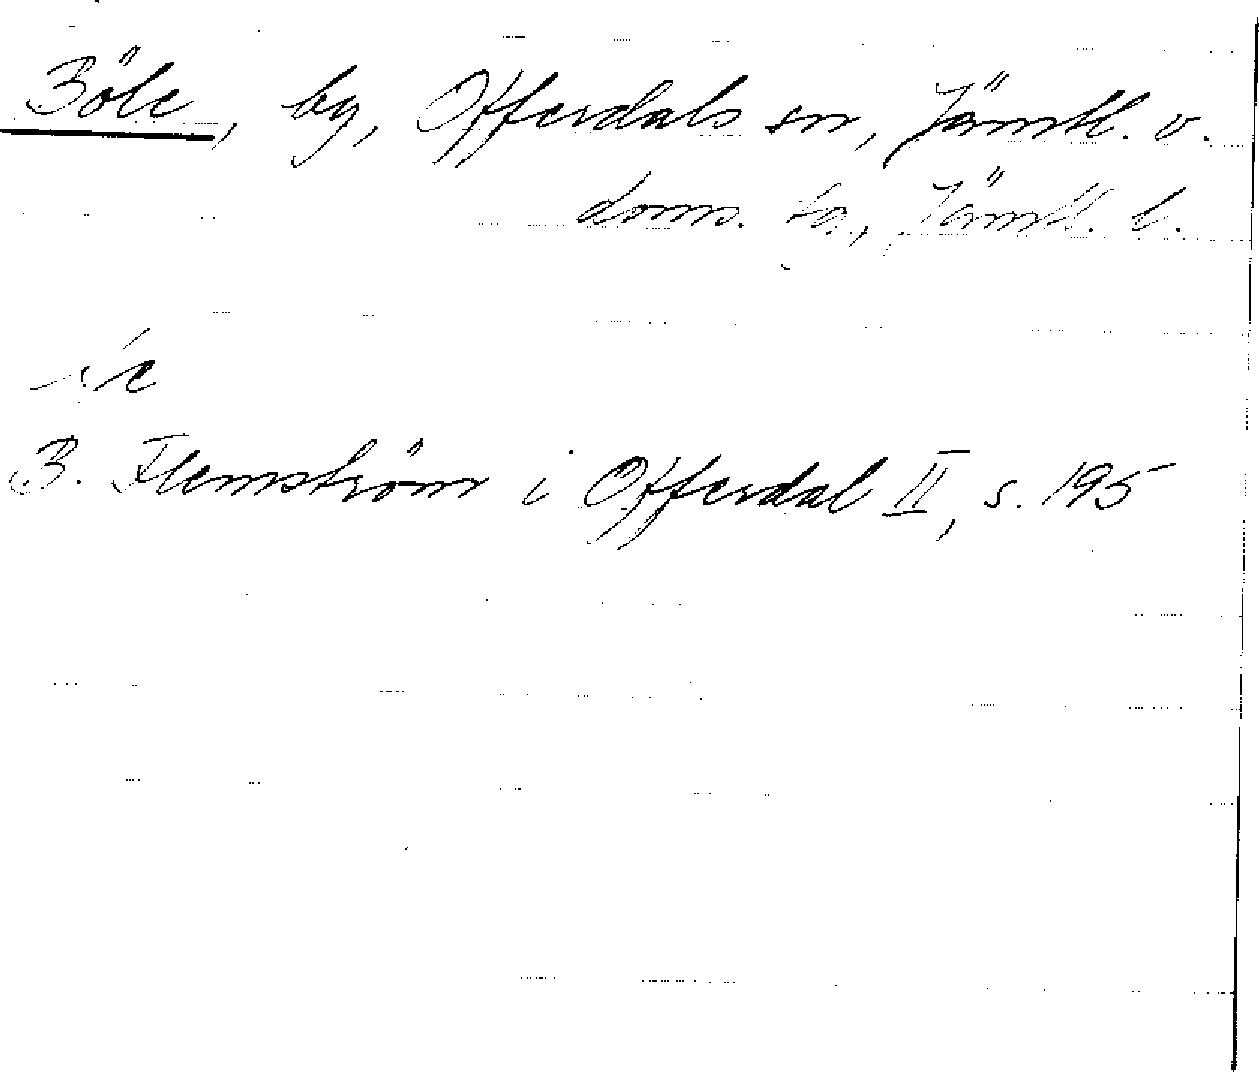 Böle, by, Offerdals sn, Jämtl. v.
doms. tg., Jämtl. l.
B. Flemström i Offerdal II, s. 195